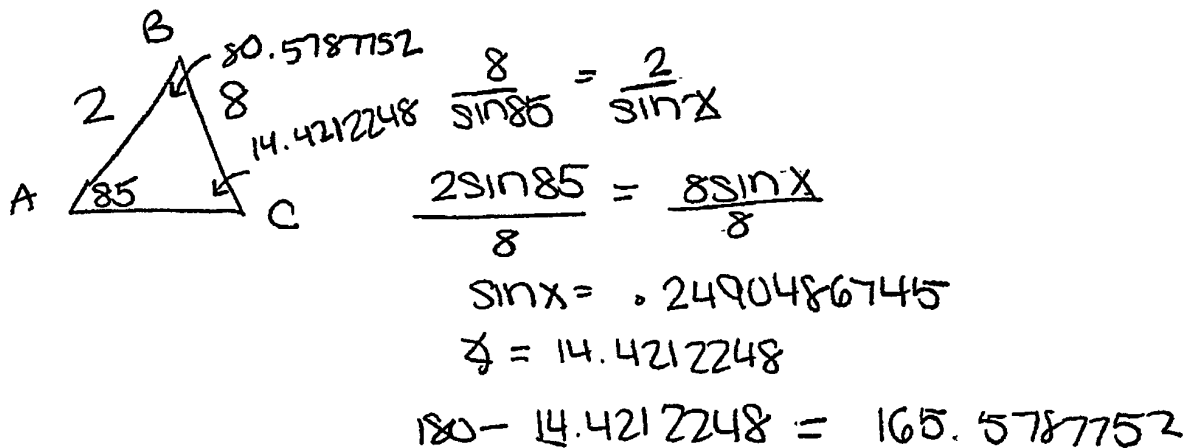 B
80.5787752
2
8
14.4212248
A
85
C
8/sin85 = 2/sinx
2sin85/8 = 8sinx/8
sinx = .2490486745
x = 14.4212248
180 - 14.4212248 = 165.5787752